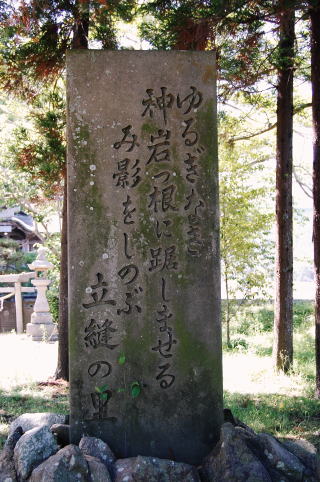 ゆるぎなき
神岩つ根に踞しませる
み影をしのぶ
立縫の里